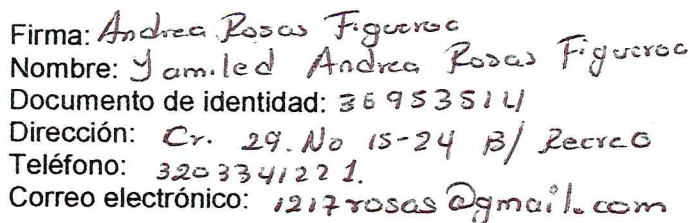 Firma: Andrea Rosas Figueroa
Nombre: Yamiled Andrea Rosas Figueroa
Documento de identidad: 36953514
Dirección: Cr. 29. No 15-24 B/ Recreo
Teléfono: 3203341221.
Correo electrónico: 1217rosas@gmail.com